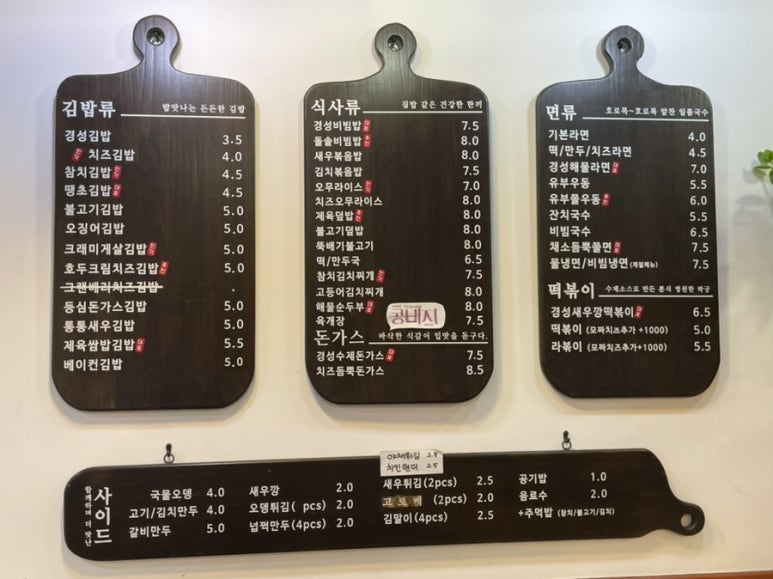 김밥류 밥맛나는 든든한 김밥
경성김밥 3.5
치즈김밥 4.0
참치김밥 4.5
땡초김밥 4.5
불고기김밥 5.0
오징어김밥 5.0
크래미게살김밥 5.0
호두크림치즈김밥 5.0
크랜베리치즈김밥
등심돈가스김밥 5.0
통통새우김밥 5.0
제육쌈밥김밥 5.5
베이컨김밥 5.0
식사류 집밥 같은 건강한 한끼
경성비빔밥 7.5
돌솥비빔밥 8.0
새우볶음밥 8.0
김치볶음밥 7.5
오무라이스 7.0
치즈오무라이스 8.0
제육덮밥 8.0
불고기덮밥 8.0
뚝배기불고기 8.0
떡/만두국 6.5
참치김치찌개 7.5
고등어김치찌개 8.0
해물순두부 8.0
콩비지
육개장 7.5
돈가스 바삭한 식감이 입맛을 돋구다.
경성수제돈가스 7.5
치즈듬뿍돈가스 8.5
면류 호로록~호로록 알찬 일품국수
기본라면 4.0
떡/만두/치즈라면 4.5
경성해물라면 7.0
유부우동 5.5
유부쫄우동 6.0
잔치국수 5.5
비빔국수 6.5
채소듬뿍쫄면 7.5
물냉면/비빔냉면 (계절메뉴) 7.5
떡볶이 수제소스로 만든 분식 영원한 짝궁
경성새우깡떡볶이 6.5
떡볶이 (모짜치즈추가 +1000) 5.0
라볶이 (모짜치즈추가+1000) 5.5
사이드
함께하며 더 맛난
국물오뎅 4.0
고기/김치만두 4.0
갈비만두 5.0
새우깡 2.0
오뎅튀김( pcs) 2.0
넙쩍만두(4pcs) 2.0
야채튀김 2.5
2.5
새우튀김(2pcs) 2.5
고로케 (2pcs) 2.0
김말이(4pcs) 2.5
공기밥 1.0
음료수 2.0
+주먹밥 (참치/불고기/김치)